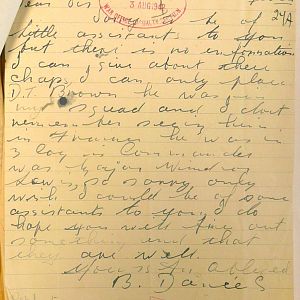 Dear Sir
3 AUG 1942
24A
be of
little assistants to you
but their is no information
I can give about their
chaps, I can only place
D.T. Brown he was in
my squad and I don't
remember seeing him
in he was in
3 Coy in Commander
was Major
so sorry only
wish I could be of some
assistants to you, I do
hope you will find out
something and that
they are well.
Yours
B. Davies